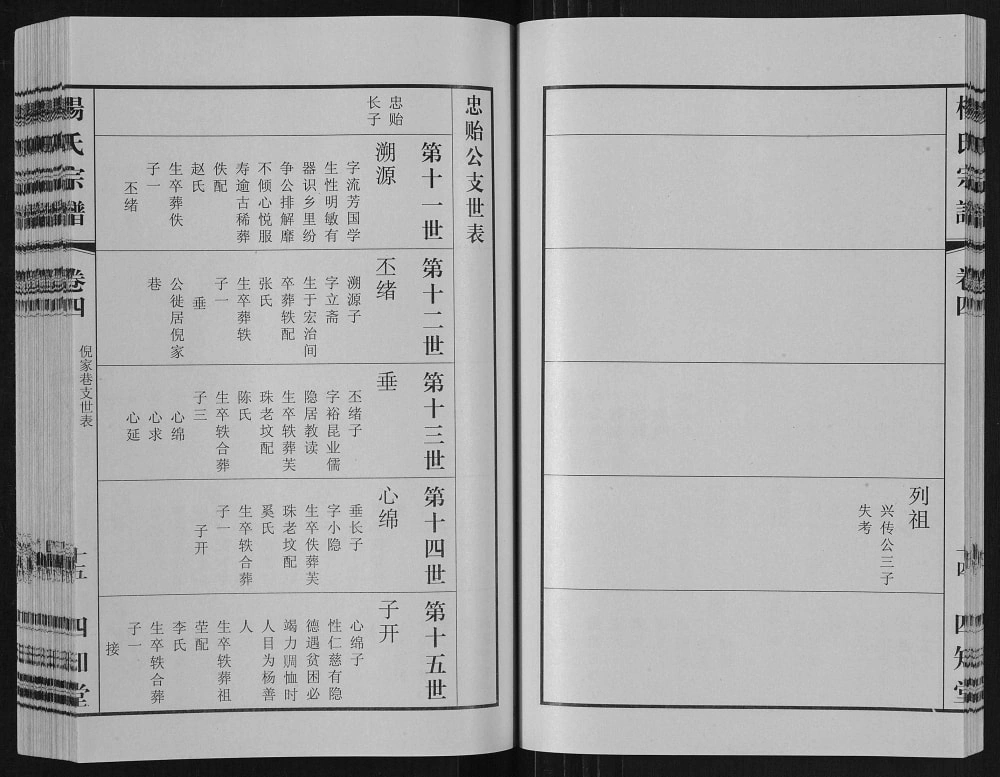 杨氏宗谱
卷四
十四
四知堂
列祖
兴传公三子
失考
忠贻公支世表
第十一世
忠贻
长子
溯源
字流芳国学
生性明敏有
器识乡里纷
争公排解靡
不倾心悦服
寿逾古稀葬
佚配
赵氏
生卒葬佚
子一
丕绪
第十二世
丕绪
溯源子
字立斋
生于宏治间
卒葬轶配
张氏
生卒葬轶
子一
垂
公徙居倪家
巷
第十三世
垂
丕绪子
字裕昆业儒
隐居教读
生卒轶葬芙
珠老坟配
陈氏
生卒轶合葬
子三
心绵
心求
心延
第十四世
心绵
垂长子
字小隐
生卒佚葬芙
珠老坟配
奚氏
生卒轶合葬
子一
子开
第十五世
子开
心绵子
性仁慈有隐
德遇贫困必
竭力赒恤时
人目为杨善
人
生卒轶葬祖
茔配
李氏
生卒轶合葬
子一
接
杨氏宗谱
卷四
倪家巷支世表
十五
四知堂